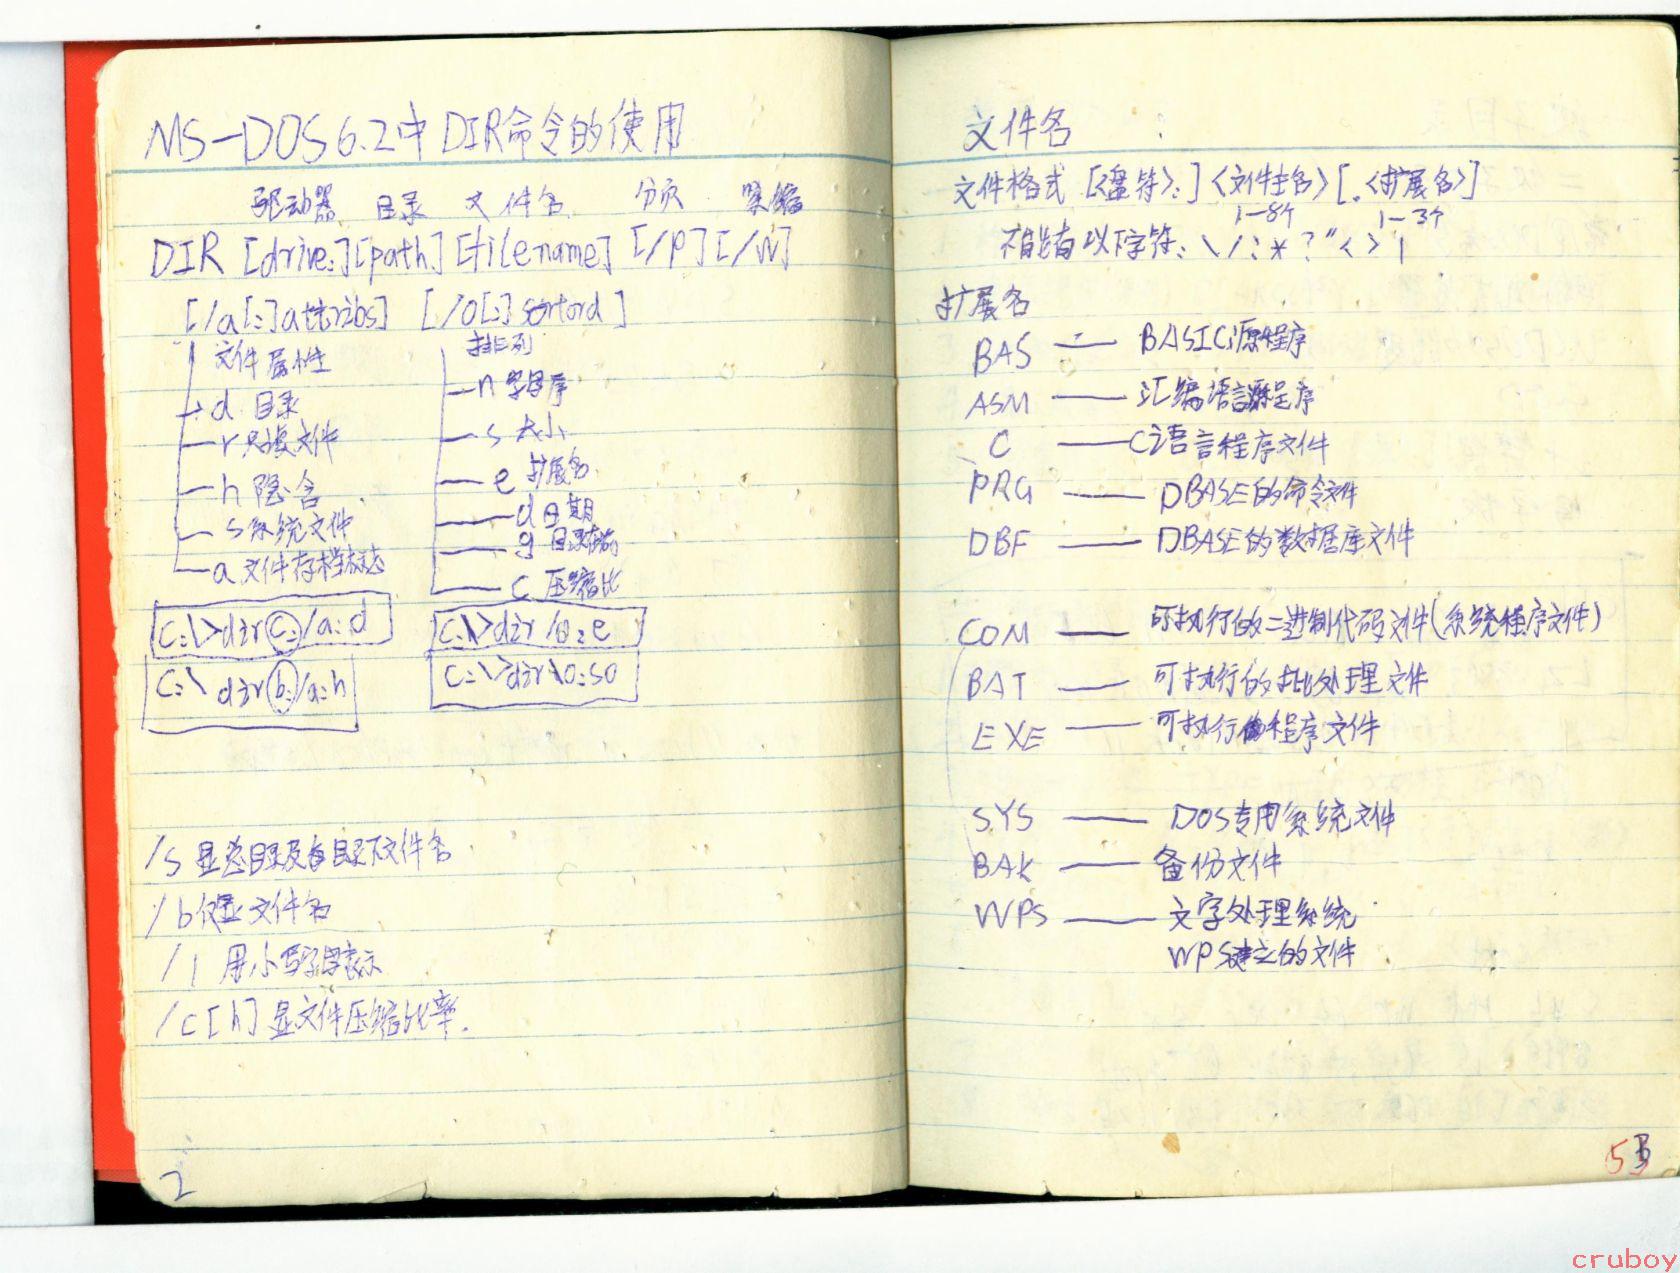 MS-DOS 6.2中DIR命令的使用
驱动器 目录 文件名 分页 紧缩
DIR [drive:][path][filename] [/P][/W]
[/a[:]attribs] [/O[:]sortord]
文件属性
d 目录
r 只读文件
h 隐含
s 系统文件
a 文件存档标志
排列
n 字母序
s 大小
e 扩展名
d 日期
g 目录在前
c 压缩比
C:\>dir C:/a:d
C:\>dir /o:e
C:\ dir b:/a:h
C:\>dir\o:so
/s 显总目录及各目录下文件名
/b 仅显文件名
/l 用小写字母表示
/c[h] 显文件压缩比率.
2
文件名
文件格式 [<盘符>:]<文件主名>[.<扩展名>]
1-8个 1-3个
不能有以下字符: \ / : * ? " < > |
扩展名
BAS —— BASIC源程序
ASM —— 汇编语言源程序
C —— C语言程序文件
PRG —— DBASE的命令文件
DBF —— DBASE的数据库文件
COM —— 可执行的二进制代码文件(系统程序文件)
BAT —— 可执行的批处理文件
EXE —— 可执行的程序文件
SYS —— DOS专用系统文件
BAK —— 备份文件
WPS —— 文字处理系统
WPS建立的文件
cruboy